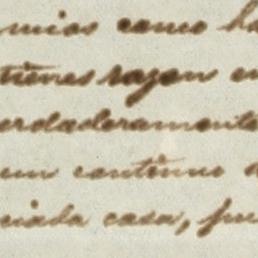 mios como ha
tienes razon en
erdaderamente
un continuo
niada casa, pu